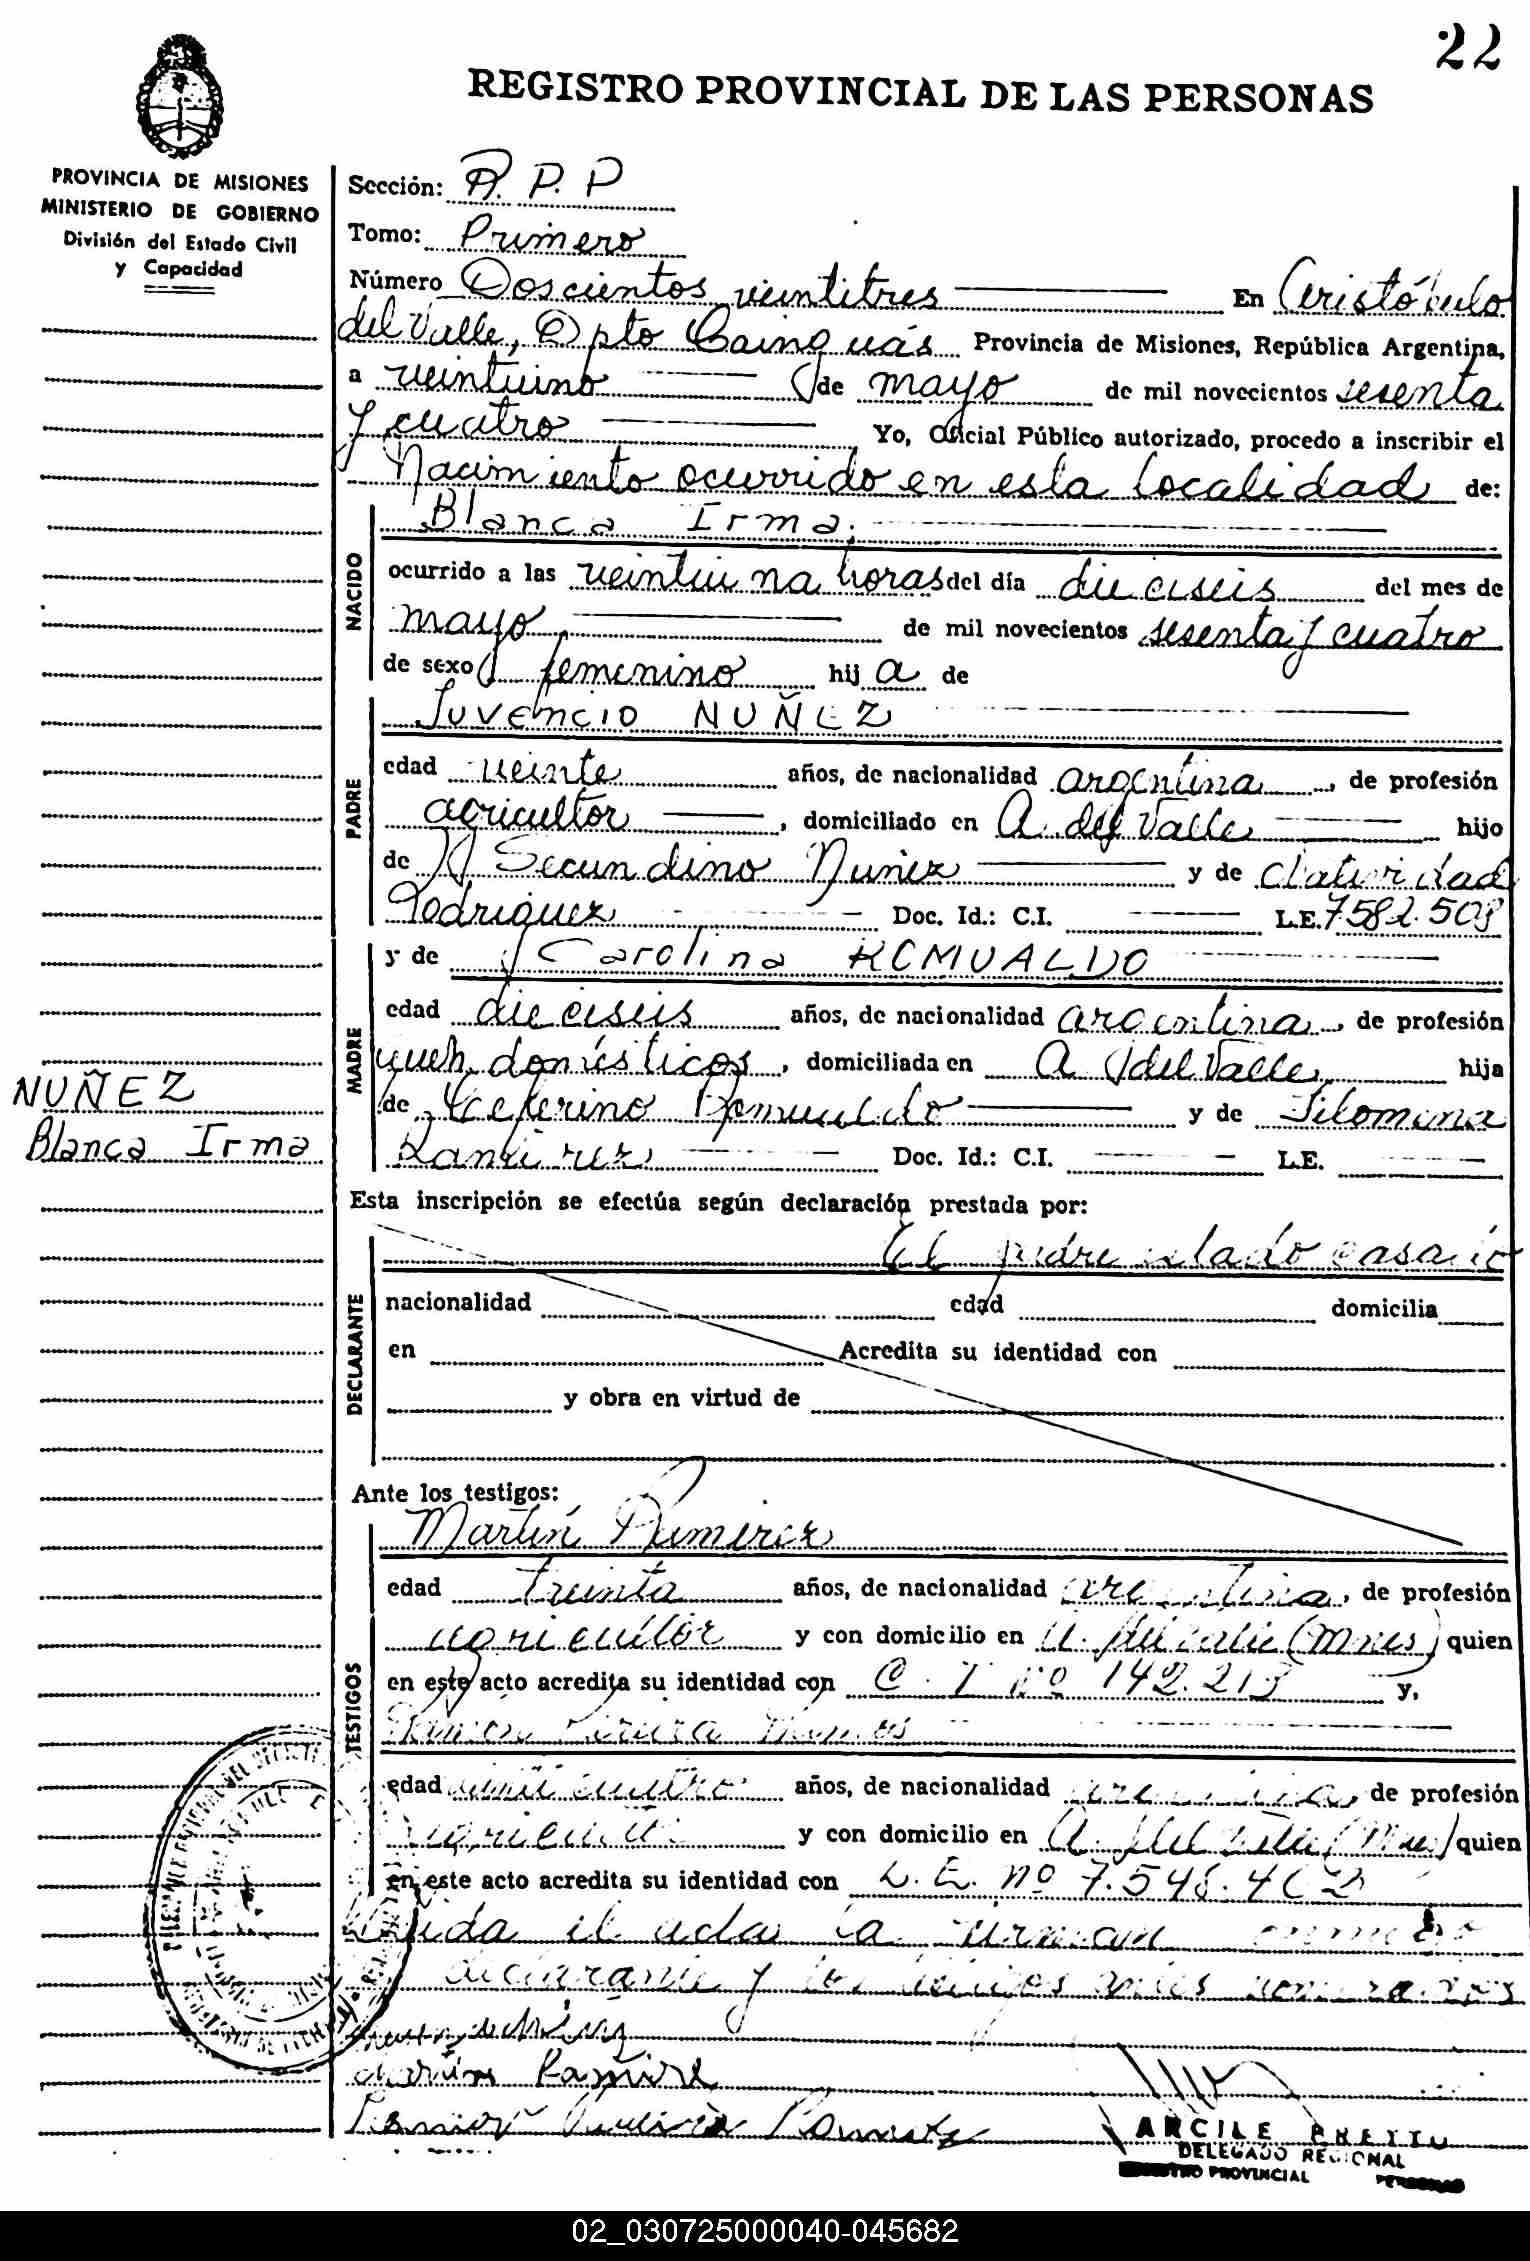 22
REGISTRO PROVINCIAL DE LAS PERSONAS
PROVINCIA DE MISIONES
MINISTERIO DE GOBIERNO
División del Estado Civil
y Capacidad
Sección: R. P. P
Tomo: Primero
Número Doscientos veintitres En Aristóbulo
del Valle, Dpto Cainguás Provincia de Misiones, República Argentina,
a veintiuno de mayo de mil novecientos sesenta
y cuatro Yo, Oficial Público autorizado, procedo a inscribir el
Nacimiento ocurrido en esta localidad de:
Blanca Irma.
NACIDO
ocurrido a las veintiuna horas del día dieciseis del mes de
mayo de mil novecientos sesenta y cuatro
de sexo femenino hija de
Juvencio NUÑEZ
PADRE
edad veinte años, de nacionalidad argentina, de profesión
agricultor, domiciliado en A. del Valle hijo
de Secundino Nuñez y de Natividad
Rodriguez Doc. Id.: C.I. L.E. 7582.508
y de Carolina ROMUALDO
MADRE
edad dieciseis años, de nacionalidad argentina, de profesión
domésticos, domiciliada en A. del Valle hija
de Ceferino Romualdo y de Filomena
Ramirez Doc. Id.: C.I. L.E.
NUÑEZ
Blanca Irma
Esta inscripción se efectúa según declaración prestada por:
El padre estado casado
DECLARANTE
nacionalidad edad domicilia
en Acredita su identidad con
y obra en virtud de
Ante los testigos:
Martín Ramirez
TESTIGOS
edad treinta años, de nacionalidad argentina, de profesión
agricultor y con domicilio en A. del Valle (Mnes) quien
en este acto acredita su identidad con C. I nº 142.213 y,
Ramón Pereira
edad cuatro años, de nacionalidad argentina, de profesión
y con domicilio en A. del Valle (Mnes) quien
en este acto acredita su identidad con L. E. nº 7.548.402
Leida el acta la firman conmigo
declarante y los testigos antes nombrados
Ramirez
Ramón Pereira
DELEGADO REGIONAL
PROVINCIAL
02_030725000040-045682